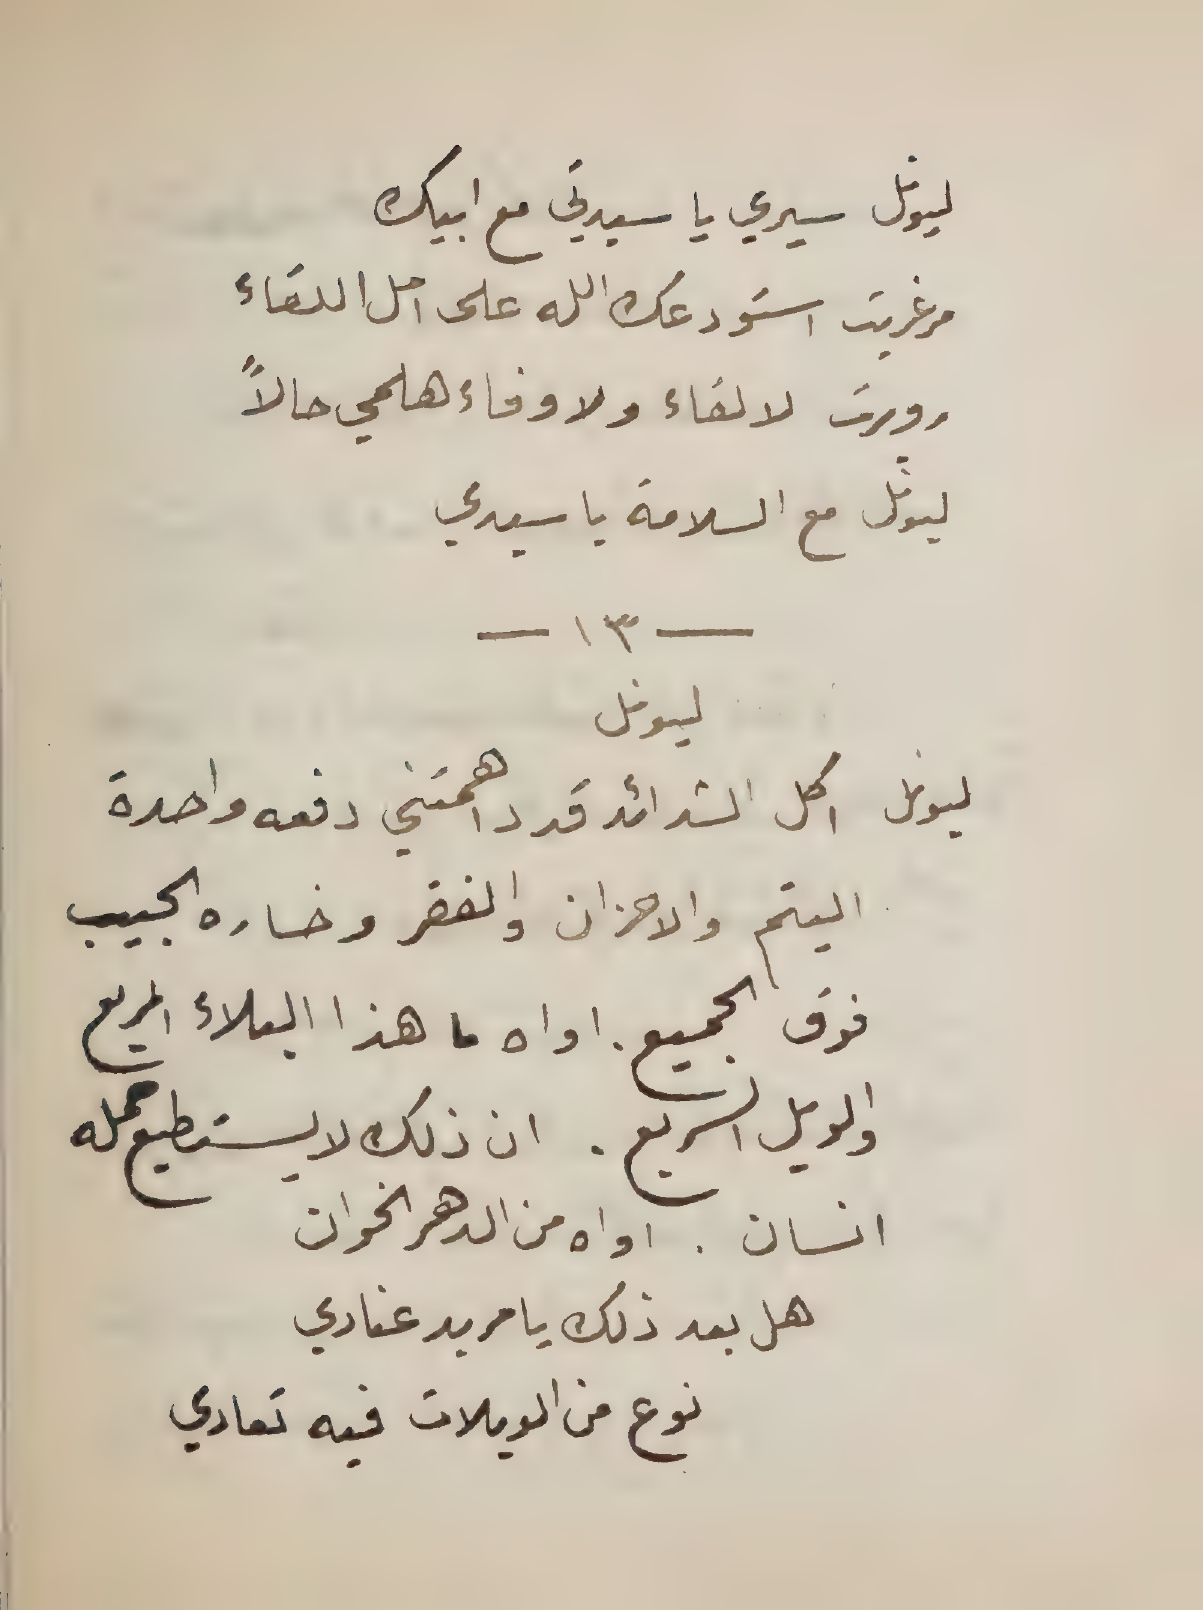 ليونل سيري يا سيدتي مع ابيك
مرغريت استودعك الله على امل اللقاء
روبرت لا لقاء ولا وفاء هلمي حالاً
ليونل مع السلامة يا سيدي
— ١٣ —
ليونل
ليونل اكل الشدائد قد داهمتني دفعه واحدة
اليتم والاحزان والفقر وخساره الحبيب
فوق الجميع. اواه ما هذا البلاء المريع
والويل السريع. ان ذلك لا يستطيع حمله
انسان. اواه من الدهر الخوان
هل بعد ذلك يا مريد عنادي
نوع من الويلات فيه تعادي